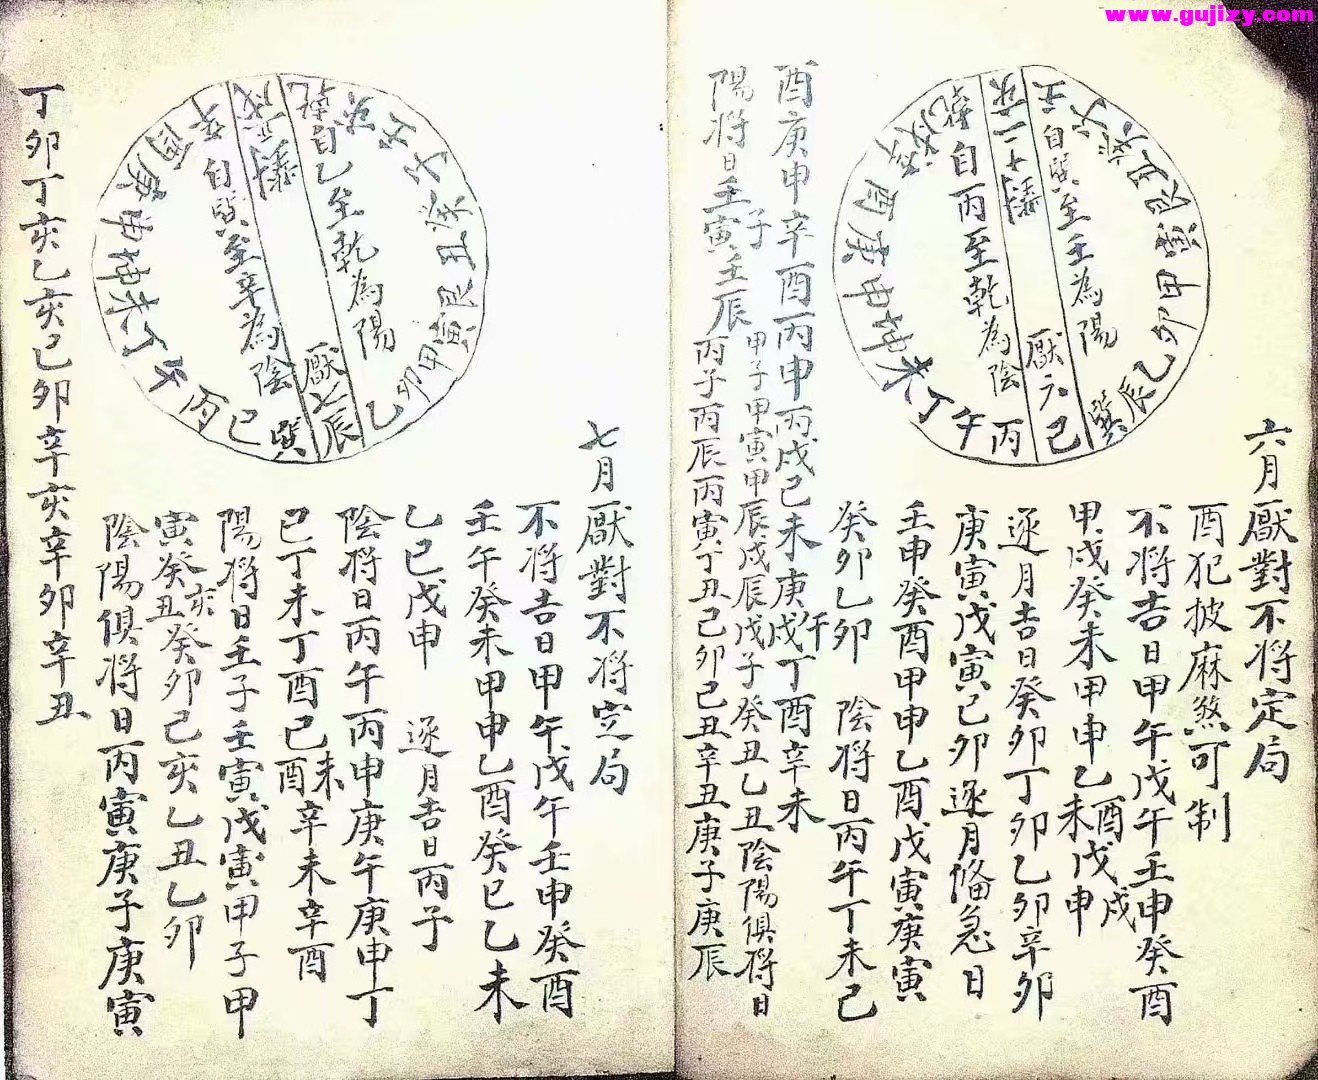 www.gujizy.com
六月厭對不将定局
酉犯披麻煞可制
不将吉日甲午戊午壬申癸酉
甲戌癸未甲申乙酉未戊戌申
逐月吉日癸卯丁卯乙卯辛卯
庚寅戊寅己卯逐月偹急日
壬申癸酉甲申乙酉戊寅庚寅
癸卯乙卯 陰将日丙午丁未己
酉庚申辛酉丙申丙戌己未庚戌午丁酉辛未
陽将日壬寅子壬辰甲子甲寅甲辰戊辰戊子癸丑乙丑陰陽俱将日
丙子丙辰丙寅丁丑己卯己丑辛丑庚子庚辰
壬子癸丑艮寅甲卯乙辰巽
巳丙午丁未坤申庚酉辛戌乾亥
自巽至壬為陽
厭六
自丙至乾為陰
七月厭對不将定局
不将吉日甲午戊午壬申癸酉
壬午癸未甲申乙酉癸巳乙未
乙巳戊申 逐月吉日丙子
陰将日丙午丙申庚午庚申丁
巳丁未丁酉己酉未辛未辛酉
陽将日壬子壬寅戊寅甲子甲
寅癸丑亥癸卯己亥乙丑乙卯
陰陽俱将日丙寅庚子庚寅
丁卯丁亥乙亥己卯辛亥辛卯辛丑
乾亥壬子癸丑艮寅甲卯乙
辰巽巳丙午丁未坤申庚酉辛戌
自乙至乾為陽
厭七
自巽至辛為陰